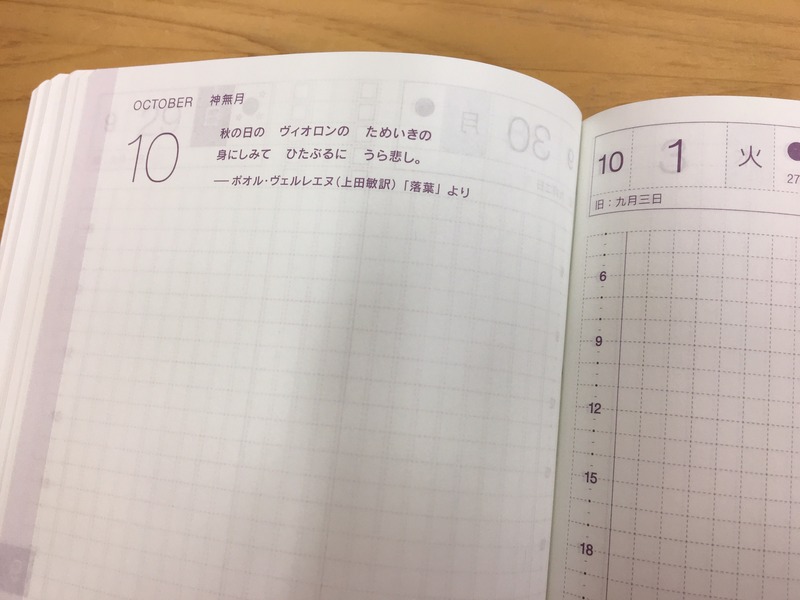 OCTOBER 神無月
10
秋の日の ヴィオロンの ためいきの
身にしみて ひたぶるに うら悲し。
―ポオル・ヴェルレエヌ(上田敏訳)「落葉」より
10 1 火
27
旧:九月三日
6
9
12
15
18
30 月
9
9